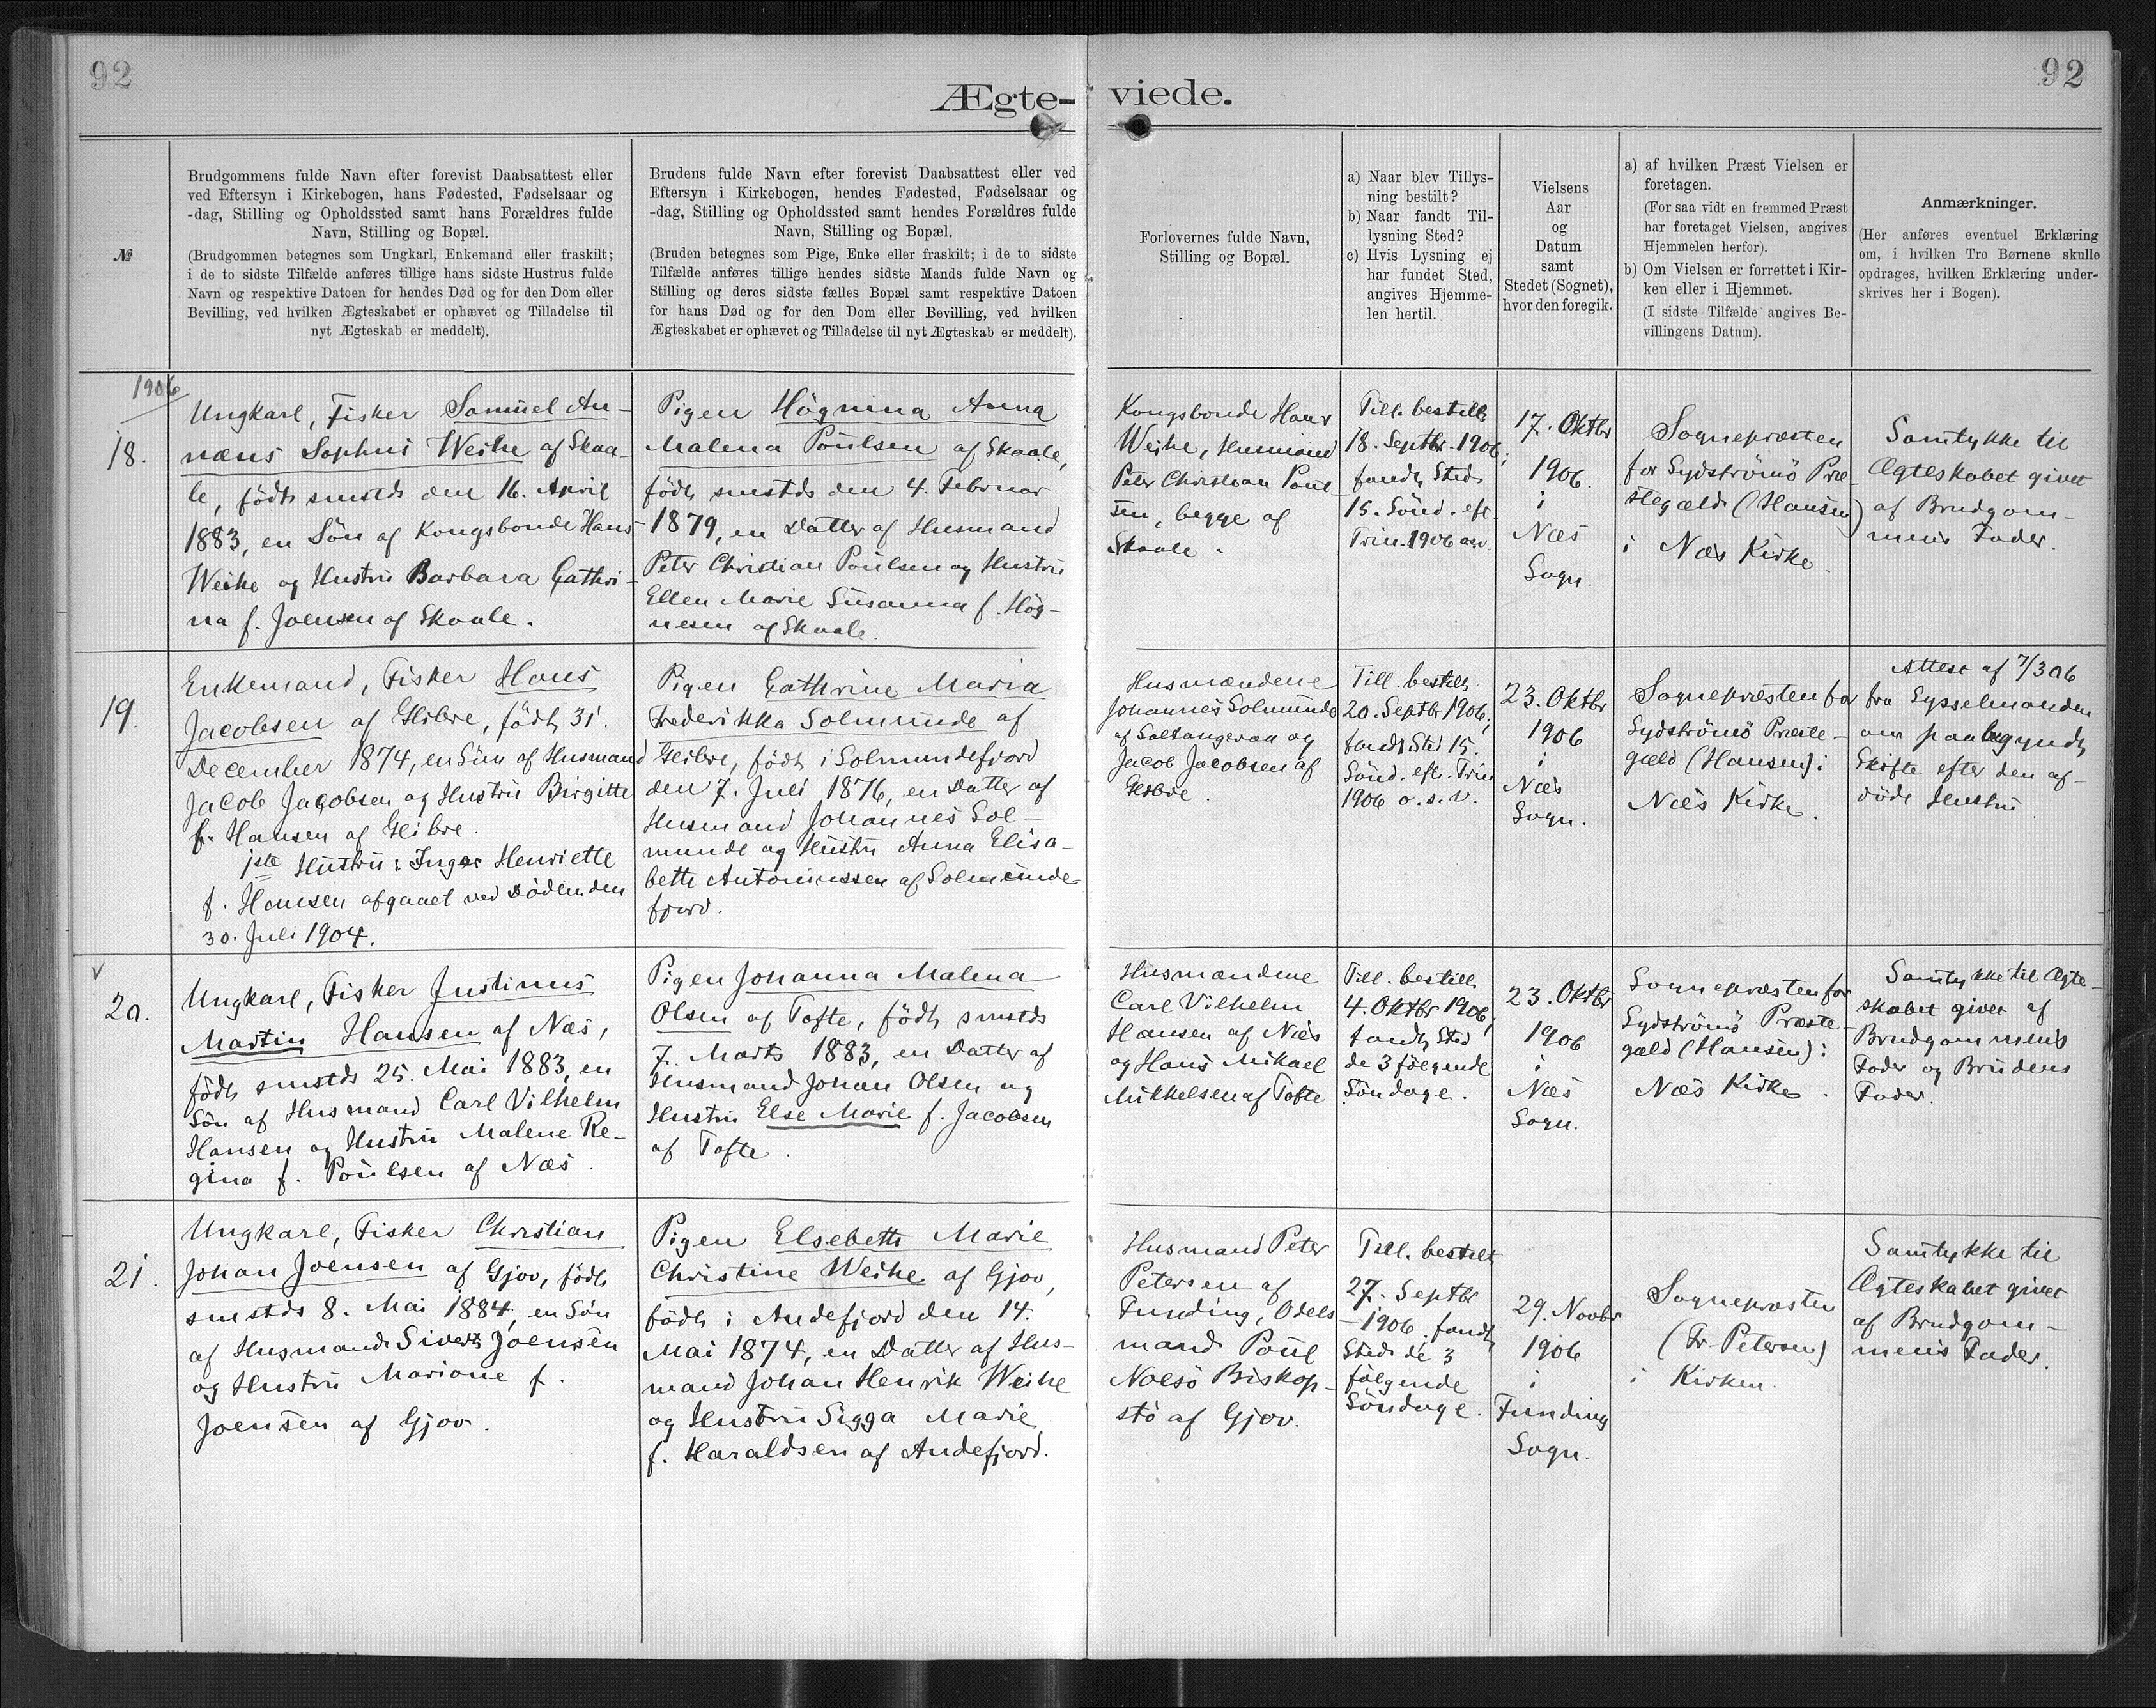 92
92
Ægte- viede.
№
Brudgommens fulde Navn efter forevist Daabsattest eller
ved Eftersyn i Kirkebogen, hans Fødested, Fødselsaar og
-dag, Stilling og Opholdssted samt hans Forældres fulde
Navn, Stilling og Bopæl.
(Brudgommen betegnes som Ungkarl, Enkemand eller fraskilt;
i de to sidste Tilfælde anføres tillige hans sidste Hustrus fulde
Navn og respektive Datoen for hendes Død og for den Dom eller
Bevilling, ved hvilken Ægteskabet er ophævet og Tilladelse til
nyt Ægteskab er meddelt).
Brudens fulde Navn efter forevist Daabsattest eller ved
Eftersyn i Kirkebogen, hendes Fødested, Fødselsaar og
-dag, Stilling og Opholdssted samt hendes Forældres fulde
Navn, Stilling og Bopæl.
(Bruden betegnes som Pige, Enke eller fraskilt; i de to sidste
Tilfælde anføres tillige hendes sidste Mands fulde Navn og
Stilling og deres sidste fælles Bopæl samt respektive Datoen
for hans Død og for den Dom eller Bevilling, ved hvilken
Ægteskabet er ophævet og Tilladelse til nyt Ægteskab er meddelt).
Forlovernes fulde Navn,
Stilling og Bopæl.
a) Naar blev Tillys-
ning bestilt?
b) Naar fandt Til-
lysning Sted?
c) Hvis Lysning ej
har fundet Sted,
angives Hjemme-
len hertil.
Vielsens
Aar
og
Datum
samt
Stedet (Sognet),
hvor den foregik.
a) af hvilken Præst Vielsen er
foretagen.
(For saa vidt en fremmed Præst
har foretaget Vielsen, angives
Hjemmelen herfor).
b) Om Vielsen er forrettet i Kir-
ken eller i Hjemmet.
(I sidste Tilfælde angives Be-
villingens Datum).
Anmærkninger.
(Her anføres eventuel Erklæring
om, i hvilken Tro Børnene skulle
opdrages, hvilken Erklæring under-
skrives her i Bogen).
1906
18.
Ungkarl, Fisker Samuel An-
næus Sophus Weihe af Skaa-
le, födt smstds den 16. April
1883, en Sön af Kongsbonde Hans
Weihe og Hustru Barbara Cathri-
na f. Joensen af Skaale.
Pigen Högnina Anna
Malena Poulsen af Skaale,
födt smstds den 4. Februar
1879, en Datter af Husmand
Peter Christian Poulsen og Hustru
Ellen Marie Susanna f. Hög-
nesen af Skaale.
Kongsbonde Hans
Weihe, Husmand
Peter Christian Poul-
sen, begge af
Skaale.
Till. bestilt
18. Septbr. 1906;
fandt Sted
15. Sönd. eft.
Trin. 1906 osv.
17. Oktbr
1906.
i
Næs
Sogn.
Sognepræsten
for Sydströmö Præ-
stegæld (Hansen)
i Næs Kirke.
Samtykke til
Ægteskabet givet
af Brudgom-
mens Fader.
19.
Enkemand, Fisker Hans
Jacobsen af Glibre, födt 31.
December 1874, en Sön af Husmand
Jacob Jacobsen og Hustru Birgitte
f. Hansen af Glibre.
1ste Hustru: Inger Henriette
f. Hansen afgaaet ved Döden den
30. Juli 1904.
Pigen Cathrine Maria
Frederikka Solmunde af
Glibre, födt i Solmundefjord
den 7. Juli 1876, en Datter af
Husmand Johannes Sol-
munde og Hustru Anna Elisa-
beth Antoniussen af Solmunde-
fjord.
Husmændene
Johannes Solmunde
af Saltangeraa og
Jacob Jacobsen af
Glibre.
Till. bestilt
20. Septbr 1906;
fandt Sted 15.
Sönd. eft. Trin
1906 o.s.v.
23. Oktbr
1906
i
Næs
Sogn.
Sognepræsten for
Sydströmö Præste-
gæld (Hansen) i
Næs Kirke.
Attest af 7/3 06
fra Sysselmanden
om paabegyndt
Skifte efter den af-
döde Hustru.
20.
Ungkarl, Fisker Justinus
Martin Hansen af Næs,
födt smstds 25. Mai 1883, en
Sön af Husmand Carl Vilhelm
Hansen og Hustru Malene Re-
gina f. Poulsen af Næs.
Pigen Johanna Malena
Olsen af Tofte, födt smstds
7. Marts 1883, en Datter af
Husmand Johan Olsen og
Hustru Else Marie f. Jacobsen
af Tofte.
Husmændene
Carl Vilhelm
Hansen af Næs
og Hans Mikael
Mikkelsen af Tofte
Till. bestilt
4. Oktbr 1906;
fandt Sted
de 3 fölgende
Söndage.
23. Oktbr
1906
i
Næs
Sogn.
Sognepræsten for
Sydströmö Præste-
gæld (Hansen) i
Næs Kirke.
Samtykke til Ægte-
skabet givet af
Brudgommens
Fader og Brudens
Fader.
21.
Ungkarl, Fisker Christian
Johan Joensen af Gjov, födt
smstds 8. Mai 1884, en Sön
af Husmand Sivert Joensen
og Hustru Mariane f.
Joensen af Gjov.
Pigen Elsebeth Marie
Christine Weihe af Gjov,
födt i Andefjord den 14.
Mai 1874, en Datter af Hus-
mand Johan Henrik Weihe
og Hustru Sigga Marie
f. Haraldsen af Andefjord.
Husmand Peter
Petersen af
Funding, Odels-
mand Poul
Nolsö Biskop-
stö af Gjov.
Till. bestilt
27. Septbr
1906; fandt
Sted de 3
fölgende
Söndage.
29. Novbr
1906
i
Funding
Sogn.
Sognepræsten
(Fr. Petersen)
i Kirken.
Samtykke til
Ægteskabet givet
af Brudgom-
mens Fader.